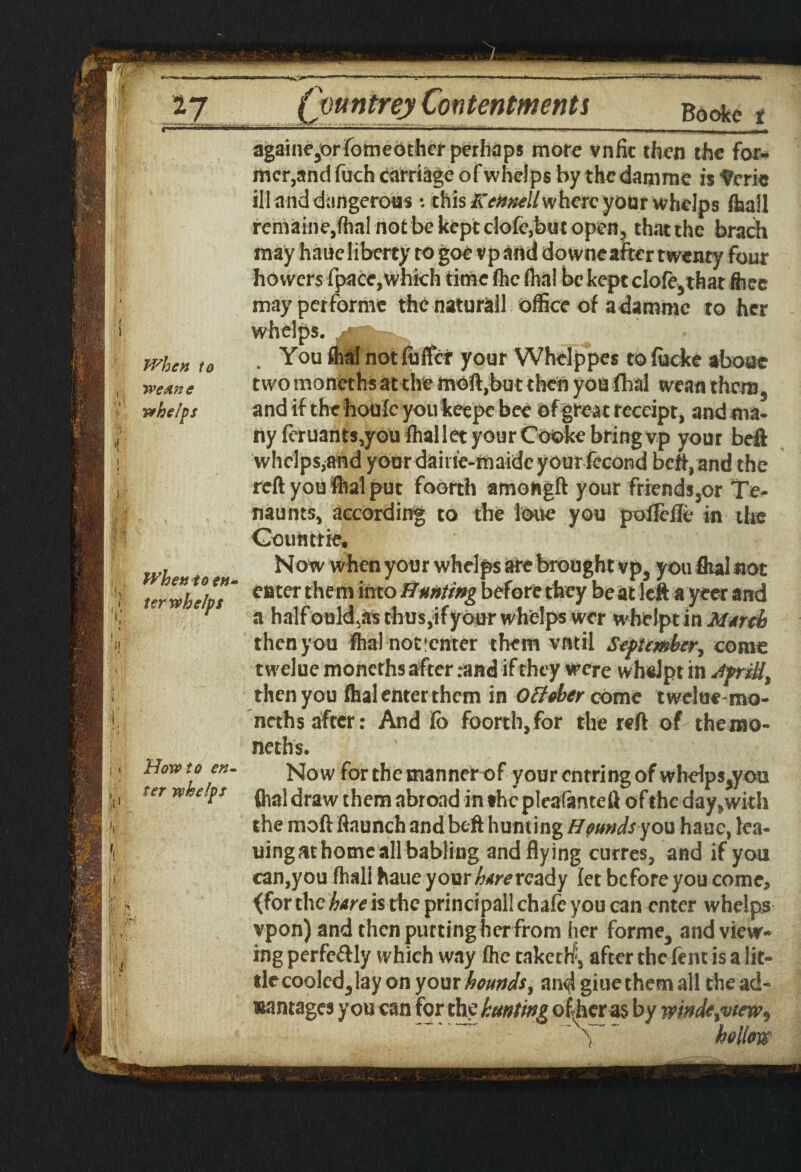 27 Countrey Contentments Booke 1
againe,or ſome other perhaps more vnfit then the for-
mer,and ſuch carriage of whelps by the damme is verie
ill and dangerous : this Kennell where your whelps ſhall
remaine,ſhal not be kept cloſe,but open, that the brach
may haue liberty to goe vp and downe after twenty four
howers ſpace,which time ſhe ſhal be kept cloſe,that ſhee
may performe the naturall office of a damme to her
whelps.
When to
weane
whelps
. You ſhal not ſuffer your Whelppes to ſucke aboue
two moneths at the moſt,but then you ſhal wean them,
and if the houſe you keepe bee of great receipt, and ma-
ny ſeruants,you ſhal let your Cooke bring vp your beſt
whelps,and your dairie-maide your ſecond beſt, and the
reſt you ſhal put foorth amongſt your friends,or Te-
naunts, according to the loue you poſſeſſe in the
Countrie.
When to en-
ter whelps
Now when your whelps are brought vp, you ſhal not
enter them into Hunting before they be at leſt a yeer and
a half ould,as thus,if your whelps wer whelpt in March
then you ſhal not enter them vntil September, come
twelue moneths after :and if they were whelpt in Aprill,
then you ſhal enter them in October come twelue-mo-
neths after: And ſo foorth,for the reſt of the mo-
neths.
How to en-
ter whelps
Now for the manner of your entring of whelps,you
ſhal draw them abroad in the pleaſanteſt of the day,with
the moſt ſtaunch and beſt hunting Hounds you haue, lea-
uing at home all babling and flying curres, and if you
can,you ſhall haue your hare ready ſet before you come,
(for the hare is the principall chaſe you can enter whelps
vpon) and then putting her from her forme, and view-
ing perfectly which way ſhe taketh, after the ſent is a lit-
tle cooled,lay on your hounds, and giue them all the ad-
uantages you can for the hunting of her as by winde,view,
hollow